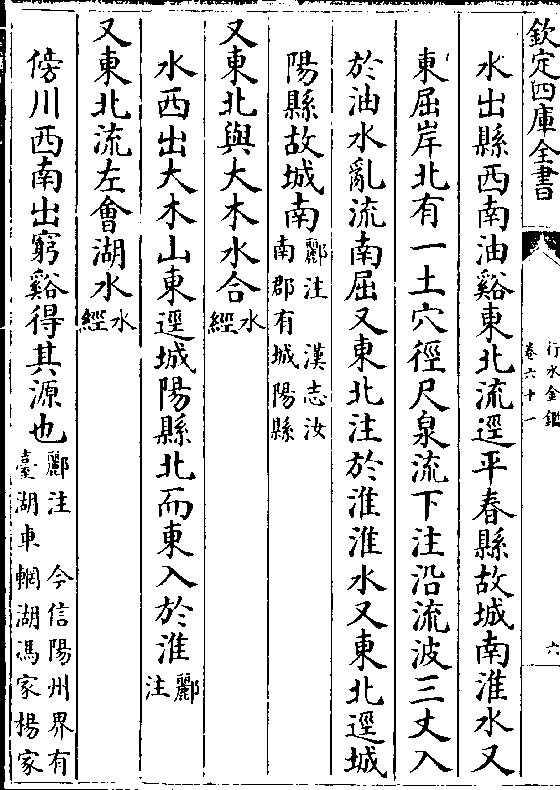 欽定四庫全書
行水金鑑
卷六十一
六
水出縣西南油谿東北流逕平春縣故城南淮水又
東屈岸北有一土穴徑尺泉流下注沿流波三丈入
於油水亂流南屈又東北注於淮淮水又東北逕城
陽縣故城南酈注　漢志汝
南郡有城陽縣
又東北與大木水合水
經
水西出大木山東逕城陽縣北而東入於淮酈
注
又東北流左會湖水水
經
傍川西南出窮谿得其源也酈注　今信陽州界有
臺湖車輞湖馮家楊家